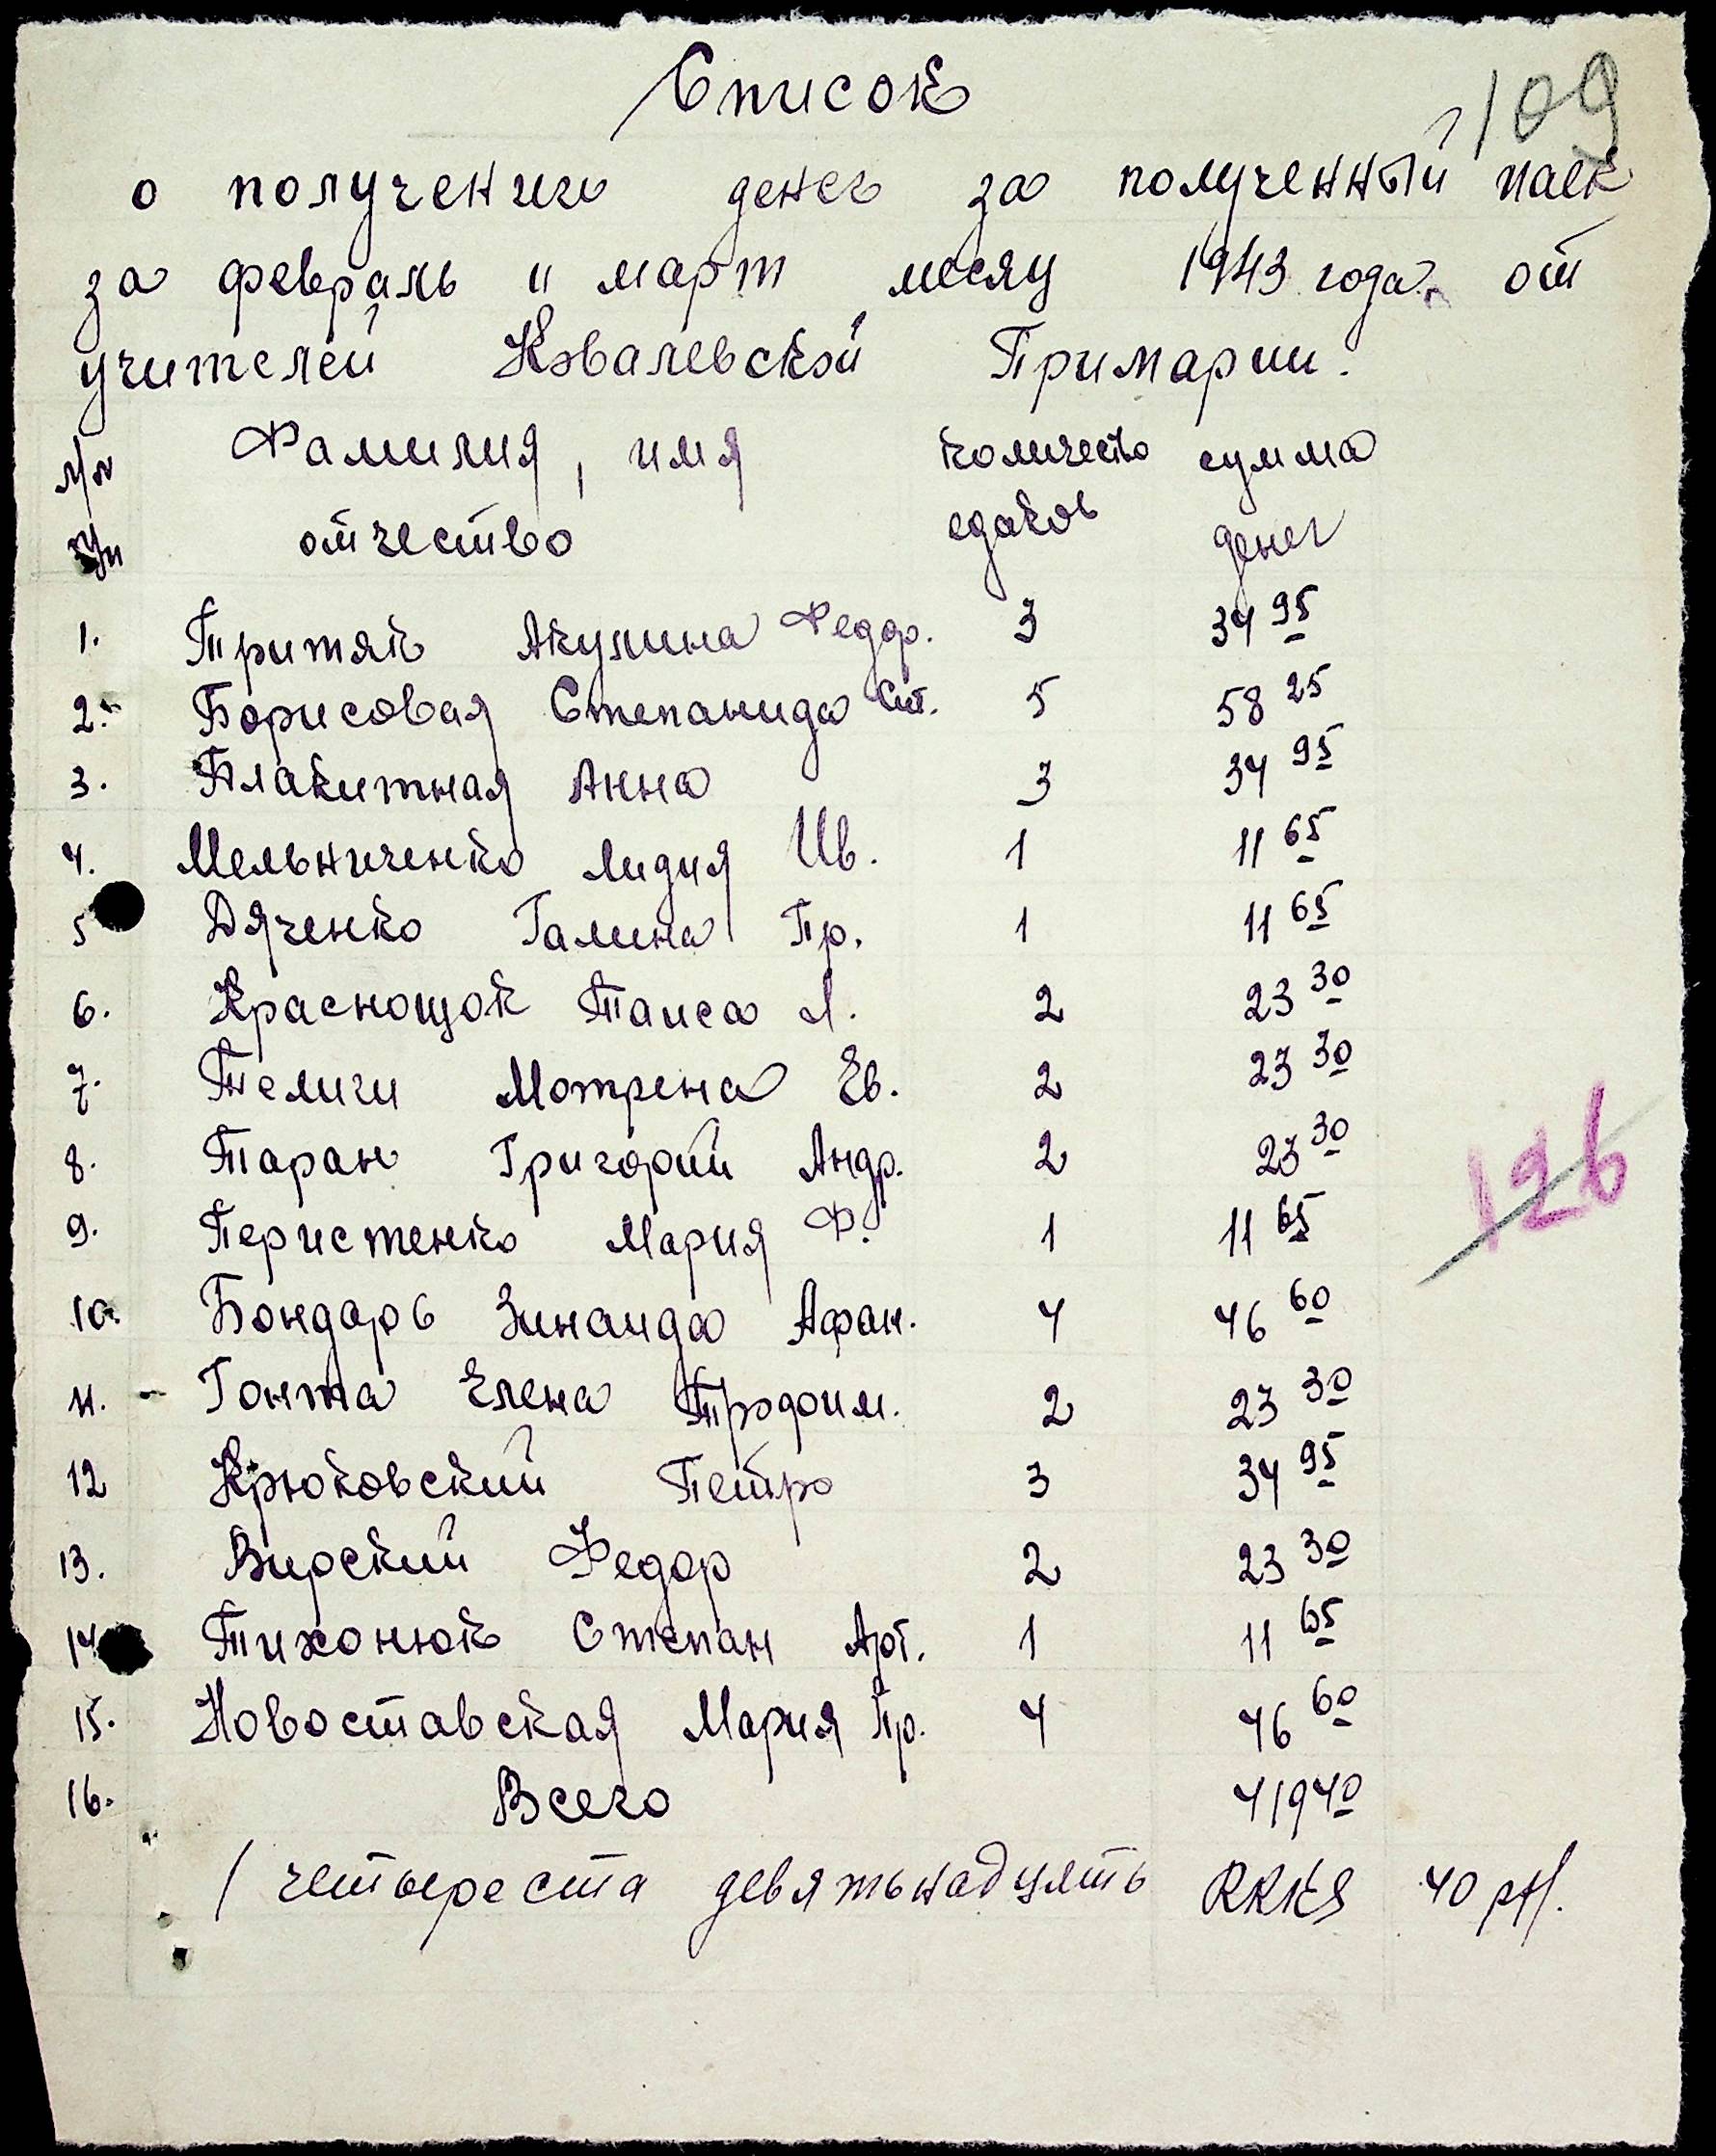 109
Список
о получению денег за полученный паек
за февраль и март месяц 1943 года от
учителей Ковалевской Примарии.
Фамилия, имя количество сумма
отчество едоков денег
1. Притяк Акулина Федор. 3 34 95
2. Борисовая Степанида Ст. 5 58 25
3. Блакитная Анна 3 34 95
4. Мельниченко Лидия Ив. 1 11 65
5 Дяченко Галина Пр. 1 11 65
6. Краснощок Таиса Л. 2 23 30
7. Телиги Мотрена Ев. 2 23 30
8. Таран Григорий Андр. 2 23 30
9. Перистенко Мария Ф. 1 11 65
10. Бондарь Зинаида Афан. 4 46 60
11. Гонта Елена 2 23 30
12 Крюковский Петро 3 34 95
13. Вирский Федор 2 23 30
14 Тихонюк Степан Арт. 1 11 65
15. Новоставская Мария Пр. 4 46 60
16. Всего 419 40
/ четыреста девятьнадцять RKKS 40 рf/.
126